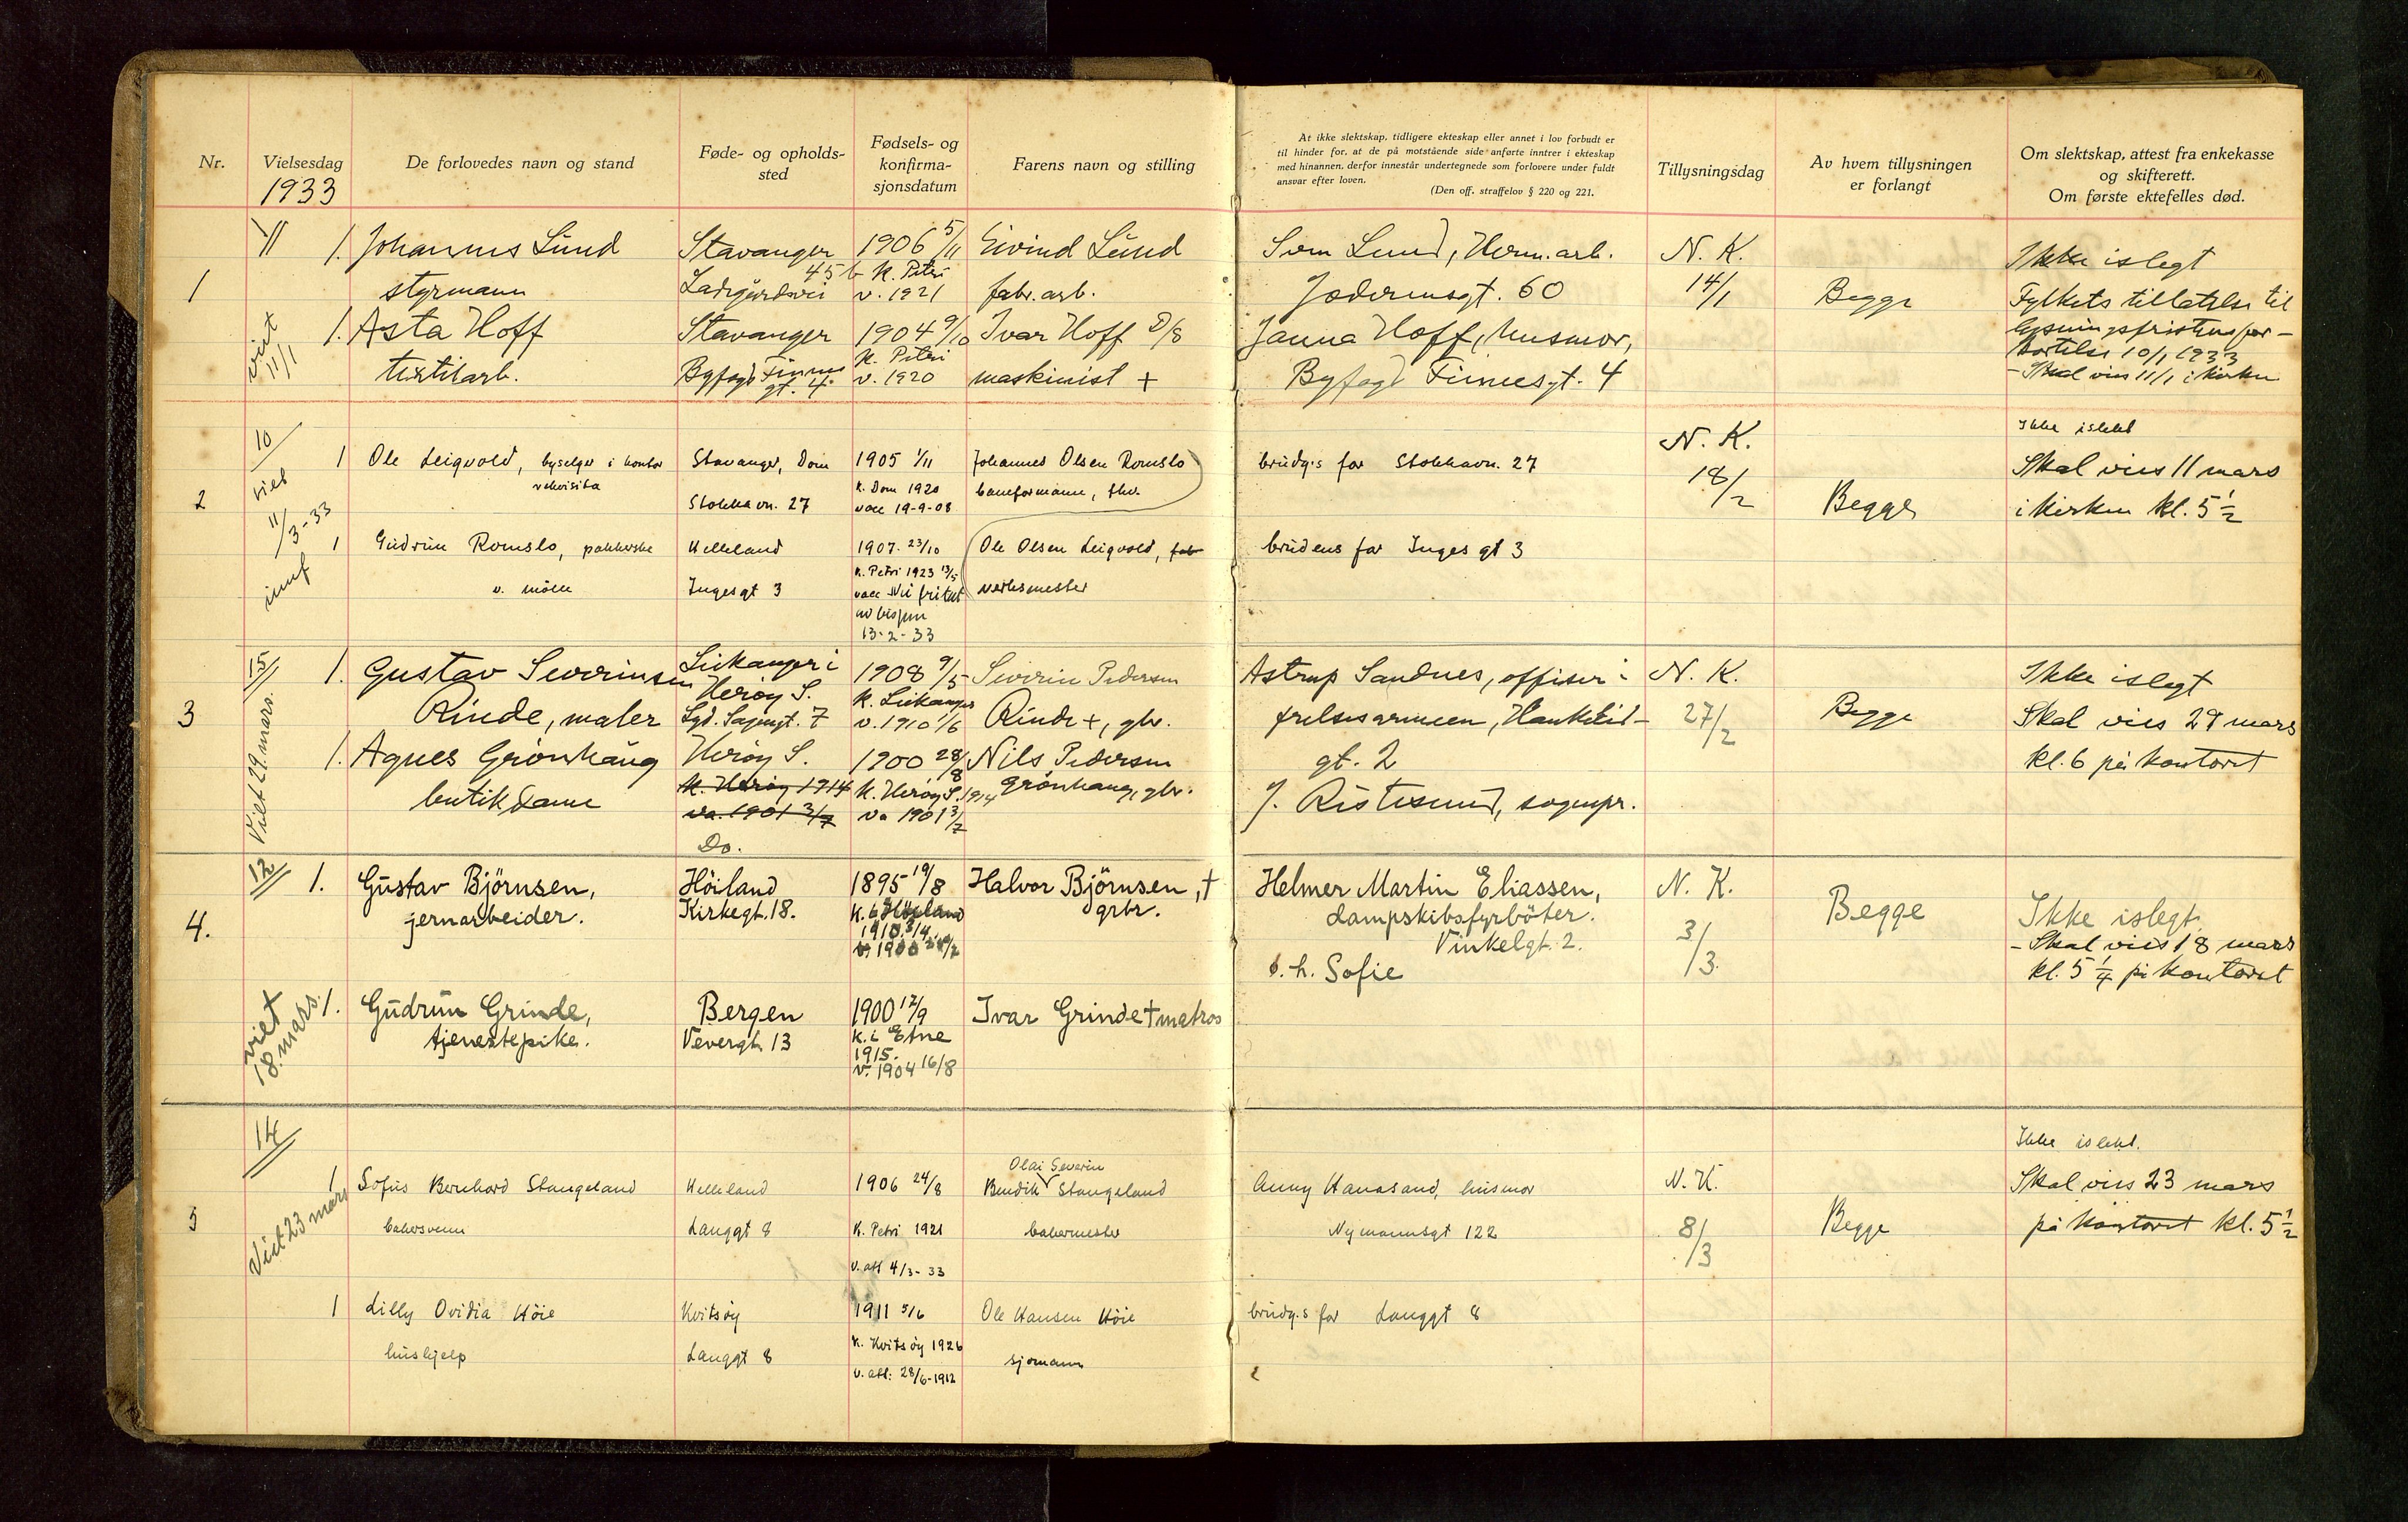 Nr.
Vielsesdag
1933
De forlovedes navn og stand
Føde- og opholds-
sted
Fødsels- og
konfirma-
sjonsdatum
Farens navn og stilling
At ikke slektskap, tidligere ekteskap eller annet i lov forbudt er
til hinder for, at de på motstående side anførte inntrer i ekteskap
med hinannen, derfor innestår undertegnede som forlovere under fuldt
ansvar efter loven.
(Den off. straffelov § 220 og 221.
Tillysningsdag
Av hvem tillysningen
er forlangt
Om slektskap, attest fra enkekasse
og skifterett.
Om første ektefelles død.
1
viet
11/1
1. Johannes Lund
styrmann
Stavanger
45 b
Ladegårdsvei
1906 5/11
K. Petri
v. 1921
Eivind Lund
fabr. arb.
Lund, Herm. arb.
Jæderensgt. 60
N. K.
14/1
Begge
Ikke i slegt
Fylkets tillatelse til
lysningsfristens for-
kortelse 10/1 1933
- Skal vies 11/1 i kirken
1. Asta Hoff
textilarb.
Stavanger
Byfogd Finnes
gt. 4.
1904 9/10
K. Petri
v. 1920
Ivar Hoff
maskinist +
Janna Hoff, husmor,
Byfogd Finnesgt. 4
2
10
viet
11/3-33
1 Ole Leigvold, byselger i kontor
rekvisita
Stavanger, Dom
Stokkavn. 27
1905 1/11
K. Dom 1920
vacc 19-9-08
Johannes Olsen Romslo
baneformann, fhv.
brudg.s far Stokkavn. 27
N. K.
18/2
Begge
Ikke i slekt
Skal vies 11 mars
i kirken kl. 5 1/2
1 Gudrun Romslo, pakkerske
v. mölle
Helleland
Ingesgt 3
1907. 23/10
K. Petri 1923 13/5
vacc fritat
av bispen
13-2-33
Ole Olsen Leigvold,
verksmester
brudens far Inges gt 3
3
15/1
Viet 29. mars.
1. Gustav Severinsen
Rinde, maler
Leikanger i
Herøy S.
1908 9/5
K. Leikanger
v. 1910 1/6
Severin Pedersen
Rinde +, gbr.
Astrup Sandnes, offiser i
frelsesarmeen,
gt. 2
N. K.
27/2
Begge
Ikke i slegt
Skal vies 29 mars
kl. 6 på kontoret
1. Agnes Grönhaug
butikdame
Herøy S.
K. Herøy 1914
va. 1901 3/7
Do.
1900 28/8
K. Herøy S. 1914
va 1901 3/7
Nils Pedersen
Grønhaug, gbr.
J. Ristesund, sognepr.
4.
12
viet
18. mars.
1. Gustav Björnsen,
jernarbeider.
Höiland
Kirkegt. 18.
1895 19/8
K. i Höiland
1910 3/4
v. 1900
Halvor Björnsen, †
grbr.
Helmer Martin Eliassen,
dampskibsfyrböter.
Vinkelgt. 2.
b. h. Sofie
N. K.
3/3.
Begge
Ikke i slegt.
- Skal vies 18 mars
kl. 5 1/4 på kontoret
1. Gudrun Grinde,
tjenestepike.
Bergen
Vevergt. 13
1900 12/9
K. i Etne
1915.
v. 1904 16/8
Ivar Grinde † matros
5
14
Viet 23 mars
1 Sofus Bernhard Stangeland
bakersvenn
Helleland
Langgt 8
1906 24/8
K. Petri 1921
v. att 4/3-33
Olai Severin
Bendik Stangeland
bakermester
Anny Hanasand, husmor
Nymannsgt 122
N. K.
8/3
Begge
Ikke i slekt.
Skal vies 23 mars
på kontoret kl. 5 1/2
1 Lilly Ovidia Höie
hushjelp
Kvitsöy
Langgt 8
1911 5/6
K. Kvitsöy 1926
v. att: 28/6-1912
Ole Hansen Höie
sjomann
brudg.s far Langgt 8